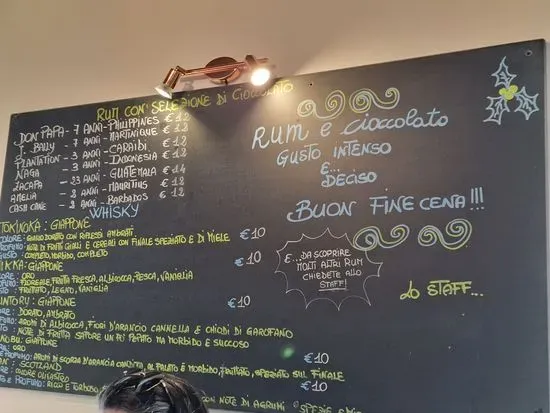 RUM CON SELEZIONE DI CIOCCOLATO
DON PAPA - 7 ANNI - PHILIPPINES €12
J. BALLY - 7 ANNI - MARTINIQUE €12
PLANTATION - 3 ANNI - CARAIBI €12
NAGA - 3 ANNI - INDONESIA €12
ZACAPA - 23 ANNI - GUATEMALA €14
AMELIA - 2 ANNI - MAURITIUS €12
CASH CANE - 2 ANNI - BARBADOS €12
WHISKY
TOKINOKA: GIAPPONE
COLORE: GIALLO DORATO CON RIFLESSI AMBRATI €10
PROFUMO: NOTE DI FRUTTI GIALLI E CEREALI CON FINALE SPEZIATO E DI MIELE
GUSTO: COMPLETO, MORBIDO, COMPLETO
NIKKA: GIAPPONE €10
COLORE: ORO
PROFUMO: FLOREALE, FRUTTA FRESCA, ALBICOCCA, PESCA, VANIGLIA
GUSTO: FRUTTATO, LEGNO, VANIGLIA
SUNTORU: GIAPPONE €10
COLORE: DORATO, AMBRATO
PROFUMO: AROMI DI ALBICOCCA, FIORI D'ARANCIO CANNELLA E CHIODI DI GAROFANO
NOTE DI FRUTTA SAPORE UN PO' PEPATO MA MORBIDO E SUCCOSO
GIAPPONE €10
ORO
PROFUMO: AROMI DI SCORZA D'ARANCIA CANDITA, AL PALATO È MORBIDO, FRUTTATO, SPEZIATO SUL FINALE
SCOTLAND €10
E PROFUMO: RICCO E TORBOSO CON NOTE DI AGRUMI SPEZIE E
RUM E CIOCCOLATO
GUSTO INTENSO
E...
DECISO
BUON FINE CENA!!!
E...DA SCOPRIRE
MOLTI ALTRI RUM
CHIEDETE ALLO
STAFF!
LO STAFF...